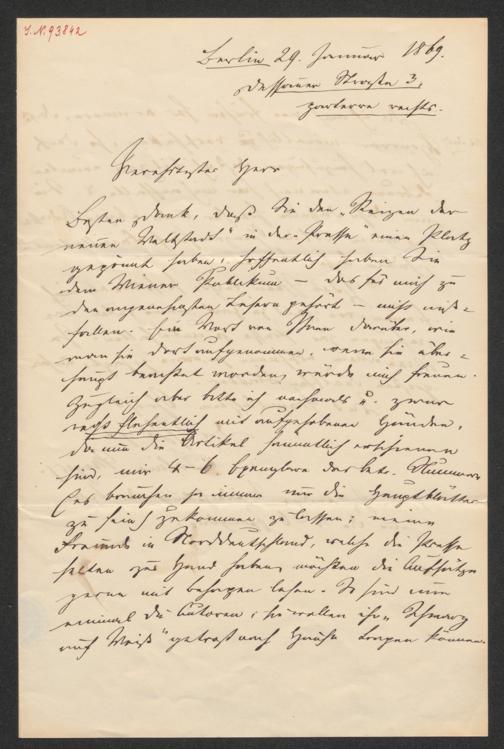 I.N. 93842
Berlin 29. Januar 1869.
Dessauer Straße 3,
parterre rechts.
Verehrtester Herr
Besten Dank, daß Sie den „Skizzen der
neuen Weltstadt" in der „Presse" einen Platz
gegönnt haben, hoffentlich haben Sie
dem Wiener Publikum – das für mich zu
den angenehmsten Lesern gehört – nicht miß-
fallen. Ein Wort von Ihnen darüber, wie
man sie dort aufgenommen, wenn sie über-
haupt beachtet worden, würde mich freuen.
Zugleich aber bitte ich nochmals u. zwar
recht flehentlich mit aufgehobenen Händen,
da nun die Artikel sämmtlich erschienen
sind, mir 4–6 Exemplare der betr. Nummern
(es brauchen ja immer nur die Hauptblätter
zu sein) zukommen zu lassen; meine
Freunde in Norddeutschland, welche die Presse
selten zur Hand haben, möchten die Aufsätze
gerne mit Behagen lesen. So sind nun
einmal die Autoren; sie wollen ihr „Schwarz
auf Weiß" getrost nach Hause tragen können.